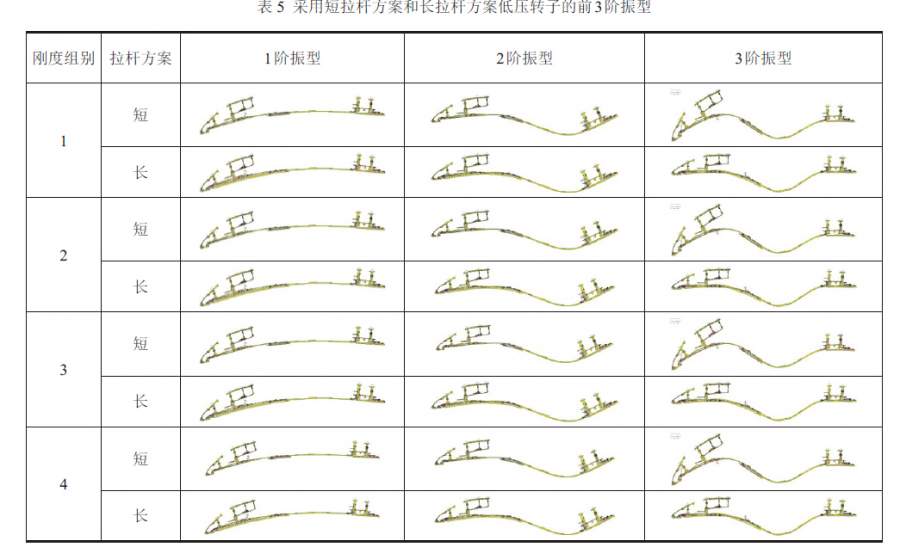 表 5 采用短拉杆方案和长拉杆方案低压转子的前3阶振型
刚度组别 拉杆方案 1阶振型 2阶振型 3阶振型
1
短
长
2
短
长
3
短
长
4
短
长